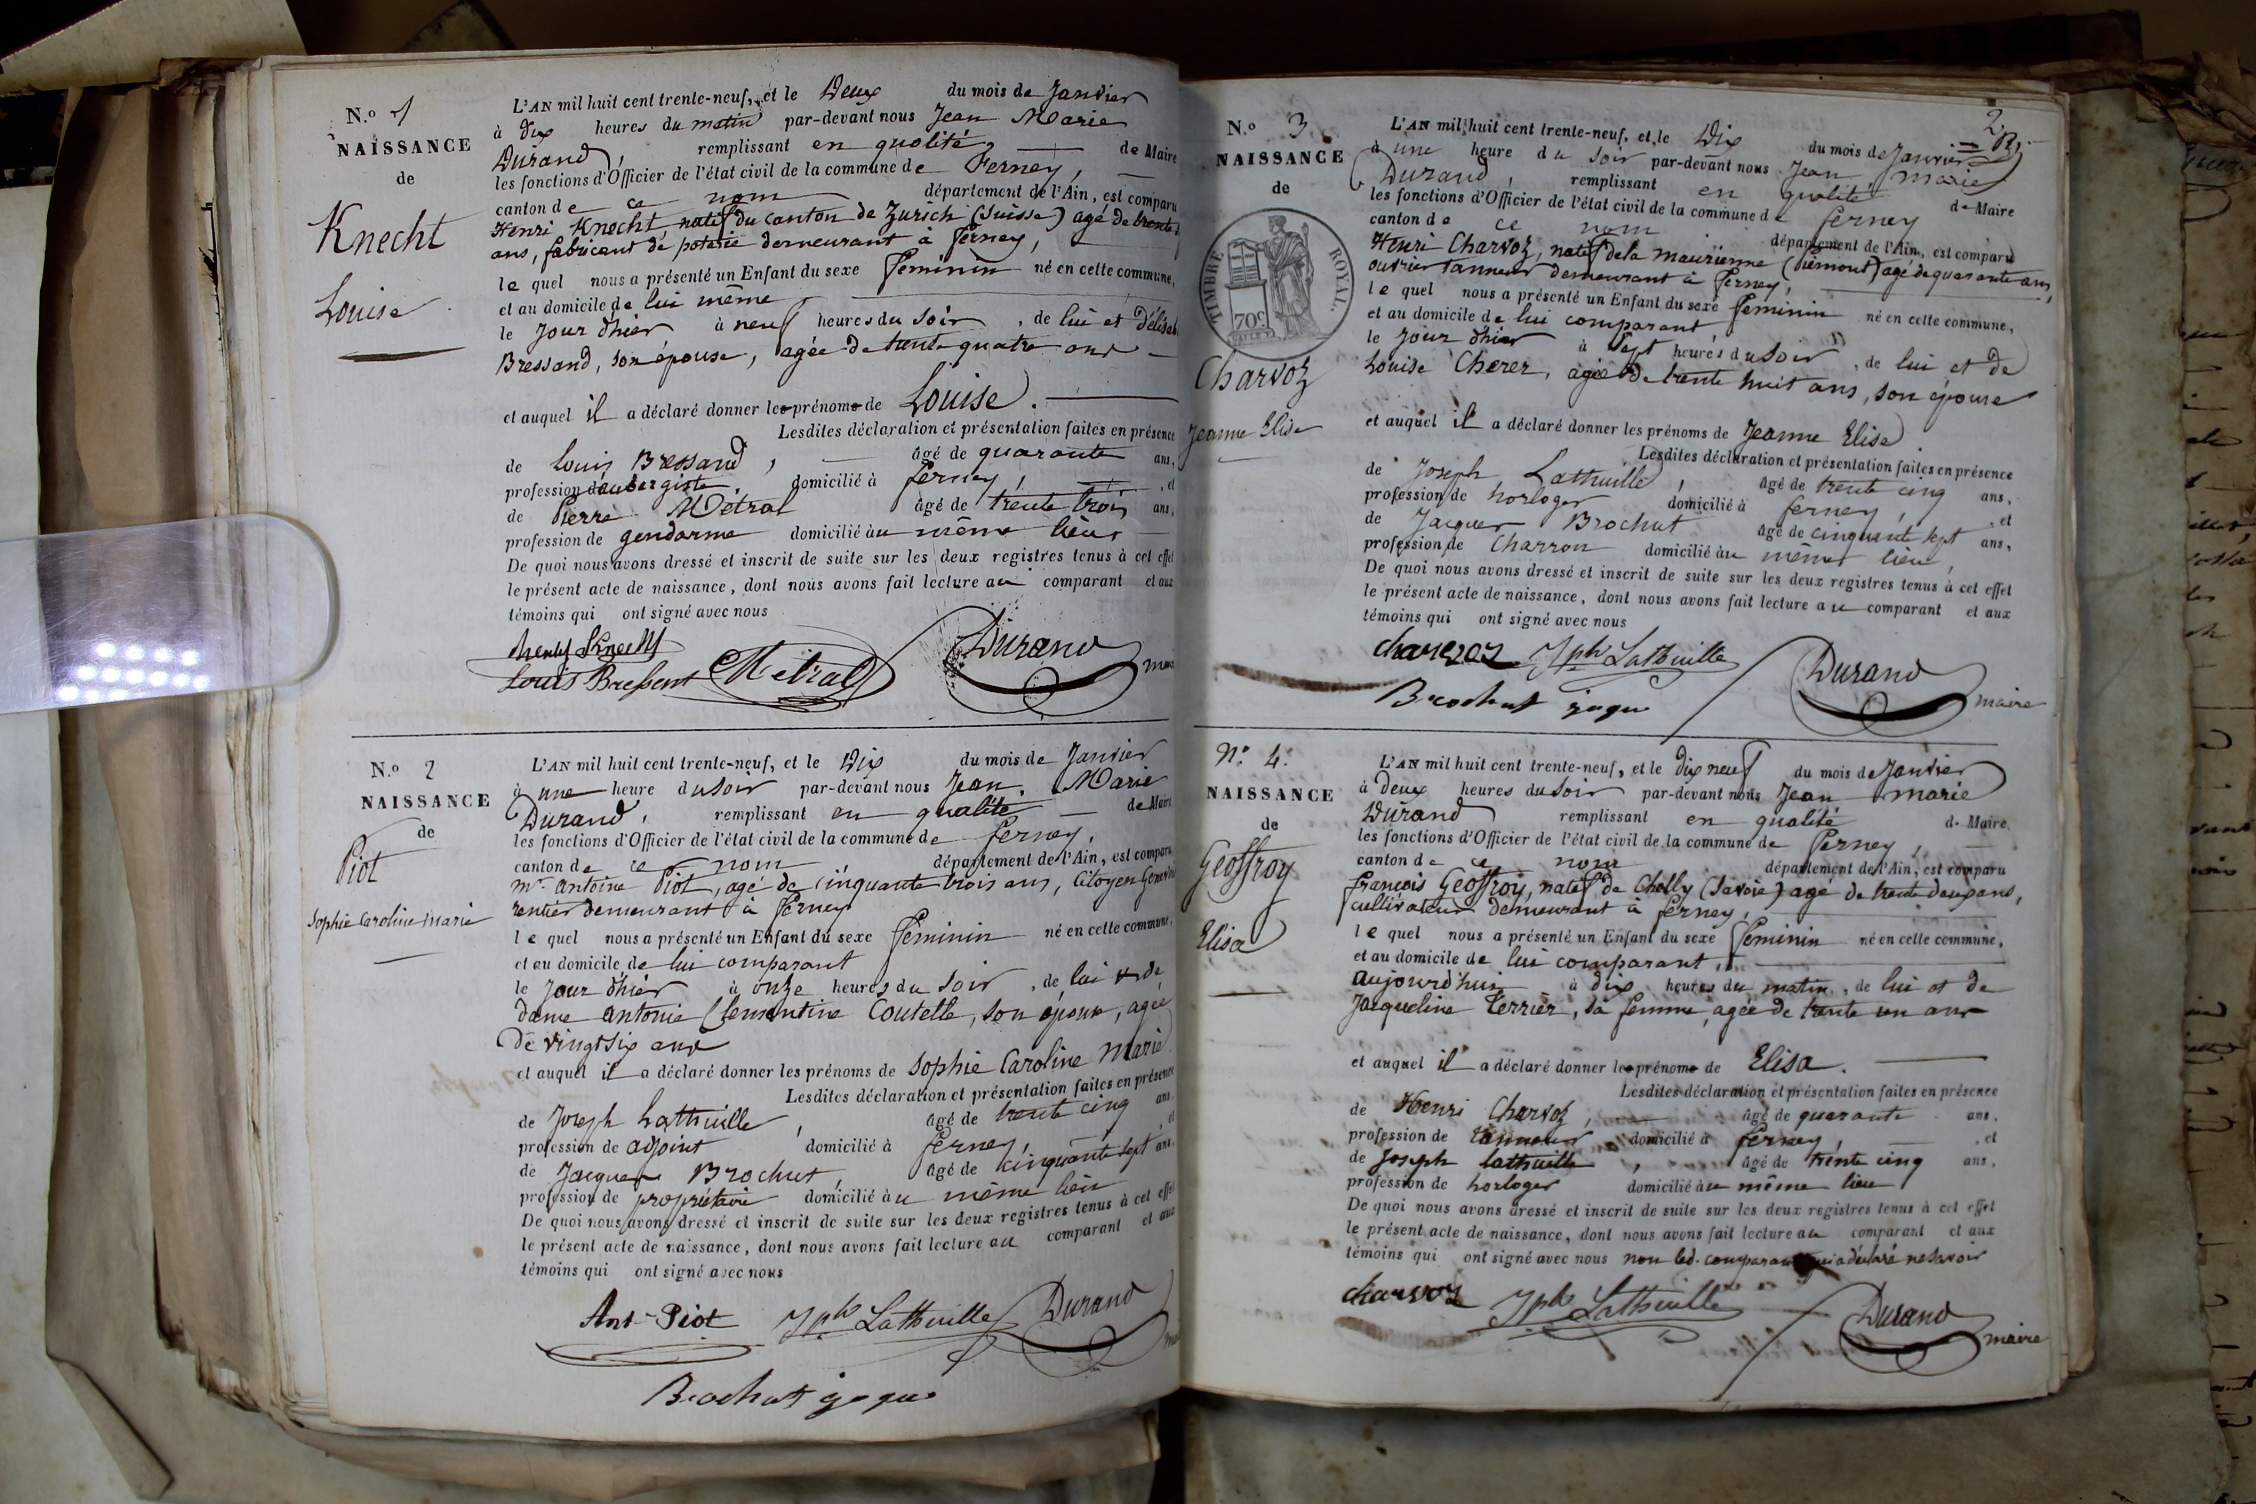 N.o 1
NAISSANCE
de
Knecht
Louise
L'AN mil huit cent trente-neuf, et le Deux du mois de Janvier
à dix heures du matin par-devant nous Jean Marie
Durand, remplissant en qualité de Maire
les fonctions d'Officier de l'état civil de la commune de Ferney,
canton de ce nom département de l'Ain, est comparu
Henri Knecht natif du canton de Zurich (Suisse) agé de trente
ans, fabricant de poterie demeurant à ferney,
le quel nous a présenté un Enfant du sexe féminin né en cette commune,
et au domicile de lui même
le Jour d'hier à neuf heures du Soir, de lui et d'élisab
Bressand, son épouse, agée de trente quatre ans
et auquel il a déclaré donner les prénoms de Louise.
Lesdites déclaration et présentation faites en présence
de Louis Bressand, âgé de quarante ans,
profession d'aubergiste domicilié à ferney, et
de Pierre Métral âgé de trente trois ans,
profession de gendarme domicilié au même lieu
De quoi nous avons dressé et inscrit de suite sur les deux registres tenus à cet effet
le présent acte de naissance, dont nous avons fait lecture au comparant et aux
témoins qui ont signé avec nous
Durand
Louis Bressant Metral
N.o 2
NAISSANCE
de
Piot
Sophie Caroline Marie
L'AN mil huit cent trente-neuf, et le Dix du mois de Janvier
à une heure du soir par-devant nous Jean Marie
Durand, remplissant en qualité de Maire
les fonctions d'Officier de l'état civil de la commune de ferney,
canton de ce nom département de l'Ain, est comparu
Mr. Antoine Piot, agé de cinquante trois ans, Citoyen Genevois
rentier demeurant à Ferney
le quel nous a présenté un Enfant du sexe féminin né en cette commune,
et au domicile de lui comparant
le Jour d'hier à onze heures du Soir, de lui et de
dame antonie Clementine Coutelle, son épouse, agée
de vingt six ans
et auquel il a déclaré donner les prénoms de Sophie Caroline Marie
Lesdites déclaration et présentation faites en présence
de Joseph Lathuille, âgé de trente cinq ans,
profession de adjoint domicilié à ferney, et
de Jacques Brochut, âgé de cinquante sept ans,
profession de propriétaire domicilié au même lieu
De quoi nous avons dressé et inscrit de suite sur les deux registres tenus à cet effet
le présent acte de naissance, dont nous avons fait lecture au comparant et aux
témoins qui ont signé avec nous
Ant Piot Jph Lathuille Durand
Brochut
2
N.o 3
NAISSANCE
de
TIMBRE ROYAL.
70c
Charvoz
Jeanne Elise
L'AN mil huit cent trente-neuf, et le Dix du mois de Janvier
à une heure du soir par-devant nous Jean Marie
Durand, remplissant en qualité de Maire
les fonctions d'Officier de l'état civil de la commune de ferney
canton de ce nom département de l'Ain, est comparu
Henri Charvoz, natif de la maurienne (Piémont) agé de quarante ans,
ouvrier tanneur demeurant à Ferney,
le quel nous a présenté un Enfant du sexe féminin né en cette commune,
et au domicile de lui comparant
le Jour d'hier à Sept heures du Soir, de lui et de
Louise Cherer, agée de trente huit ans, son épouse
et auquel il a déclaré donner les prénoms de Jeanne Elise
Lesdites déclaration et présentation faites en présence
de Joseph Lathuille, âgé de trente cinq ans,
profession de horloger domicilié à ferney, et
de Jacques Brochut âgé de cinquante sept ans,
profession de Charron domicilié au même lieu,
De quoi nous avons dressé et inscrit de suite sur les deux registres tenus à cet effet
le présent acte de naissance, dont nous avons fait lecture au comparant et aux
témoins qui ont signé avec nous
Jph Lathuille Durand
Brochut maire
No. 4.
NAISSANCE
de
Geoffroy
Elisa
L'AN mil huit cent trente-neuf, et le dix neuf du mois de Janvier
à Deux heures du Soir par-devant nous Jean Marie
Durand remplissant en qualité de Maire
les fonctions d'Officier de l'état civil de la commune de Ferney,
canton de ce nom département de l'Ain, est comparu
françois Geoffroy, natif de Chelly (Savoie) agé de trente deux ans,
cultivateur demeurant à ferney,
le quel nous a présenté un Enfant du sexe féminin né en cette commune,
et au domicile de lui comparant,
aujourd'hui à dix heures du matin, de lui et de
Jacqueline Terrier, sa femme, agée de trente un ans
et auquel il a déclaré donner les prénoms de Elisa.
Lesdites déclaration et présentation faites en présence
de Henri Charvoz, âgé de quarante ans,
profession de tanneur domicilié à ferney, et
de Joseph Lathuille, âgé de trente cinq ans,
profession de horloger domicilié au même lieu
De quoi nous avons dressé et inscrit de suite sur les deux registres tenus à cet effet
le présent acte de naissance, dont nous avons fait lecture au comparant et aux
témoins qui ont signé avec nous non led. comparant qui a déclaré ne savoir
Charvoz Jph Lathuille Durand
maire